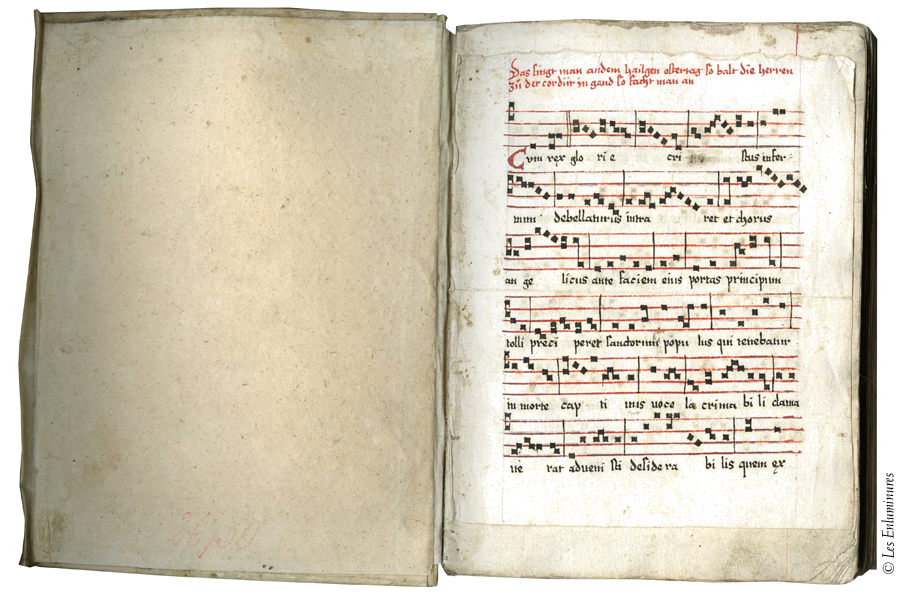 Das singt man andem hailgen ostertag so balt die herren
zů der cordür in gand so facht man an
Cum rex glo ri e cri stus infer-
num debellaturus intra ret et chorus
an ge licus ante faciem eius portas principum
tolli preci peret sanctorum popu lus qui tenebatur
in morte cap ti uus uoce la crima bi li clama
ue rat adueni sti deside ra bi lis quem ex
© Les Enluminures